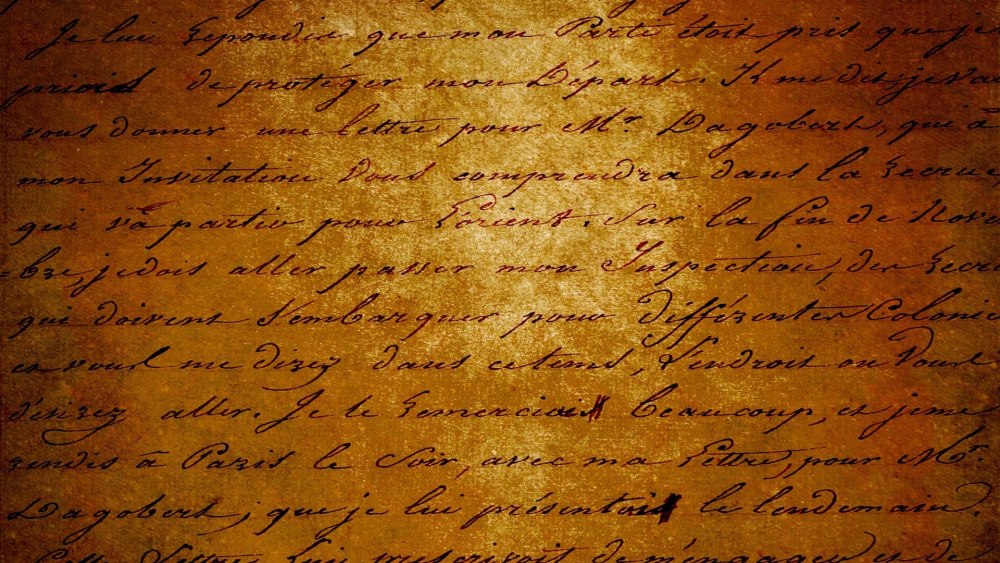 Je lui Répondis que mon Parti étoit pris que je
priois de protéger mon Départ. Il me dit, je va
vous donner une lettre pour Mr. Dagobert, qui à
mon Invitation Vous comprendra dans la Recrue
qui va partir pour L'orient. Sur la fin de Nove
=bre, je dois aller passer mon Inspection, des Recru
qui doivent S'embarquer pour différentes Colonie
et vous me direz dans ce tems, L'endroit ou Vous
désirez aller. Je le Remerciai beaucoup, et je me
rendis à Paris le Soir, avec ma Lettre, pour Mr.
Dagobert, que je lui présentai le lendemain.
Cette Lettre Lui prescrivoit de m'engager et de